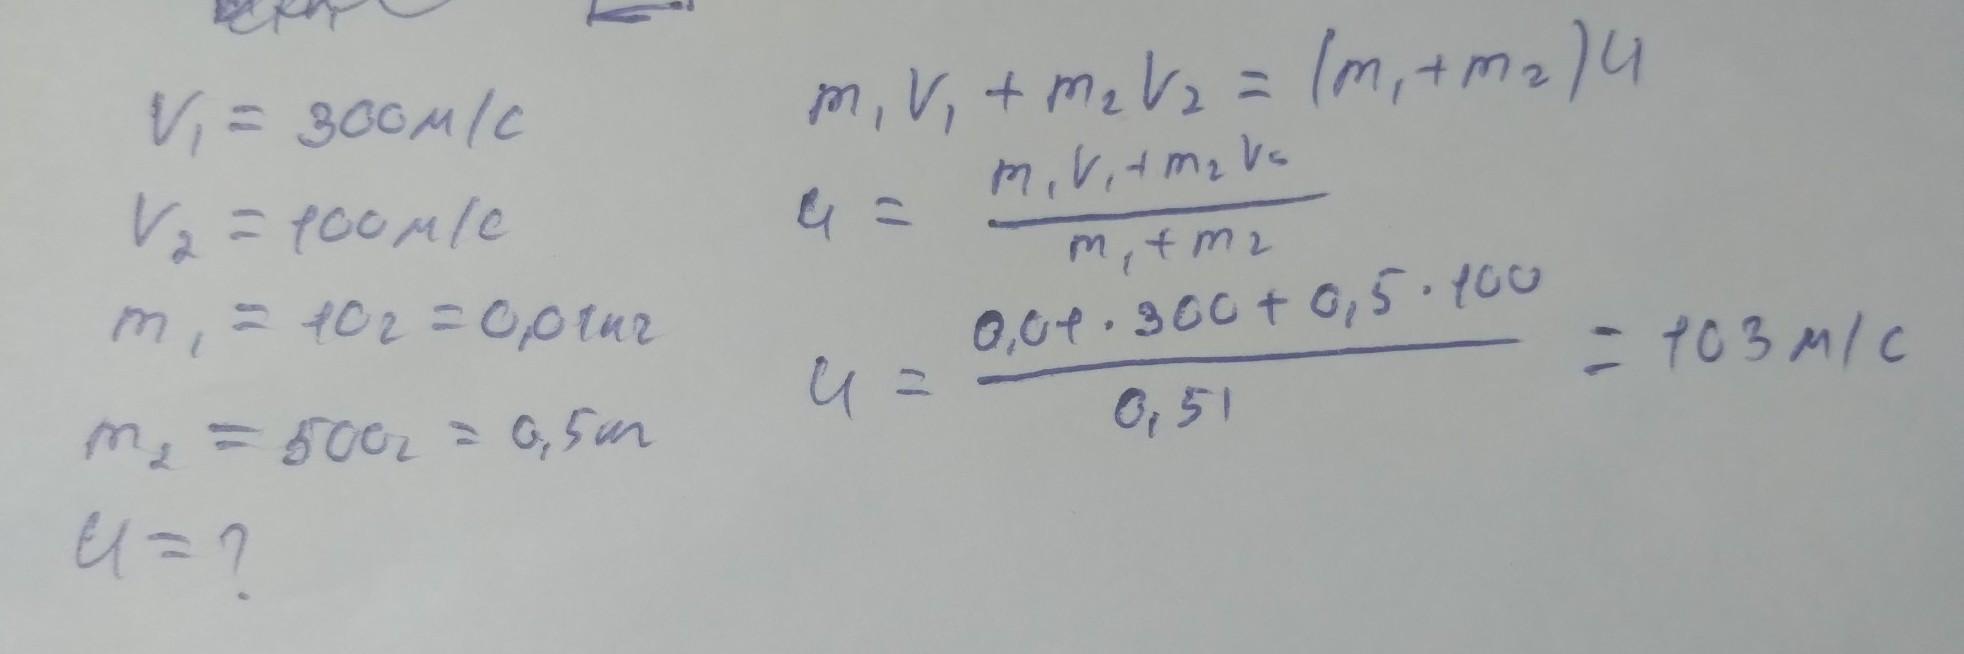 V₁ = 300м/с
V₂ = 100м/с
m₁ = 10г = 0,01кг
m₂ = 500г = 0,5кг
u = ?
m₁V₁ + m₂V₂ = (m₁ + m₂)u
u = (m₁V₁ + m₂V₂) / (m₁ + m₂)
u = (0,01 · 300 + 0,5 · 100) / 0,51 = 103 м/с